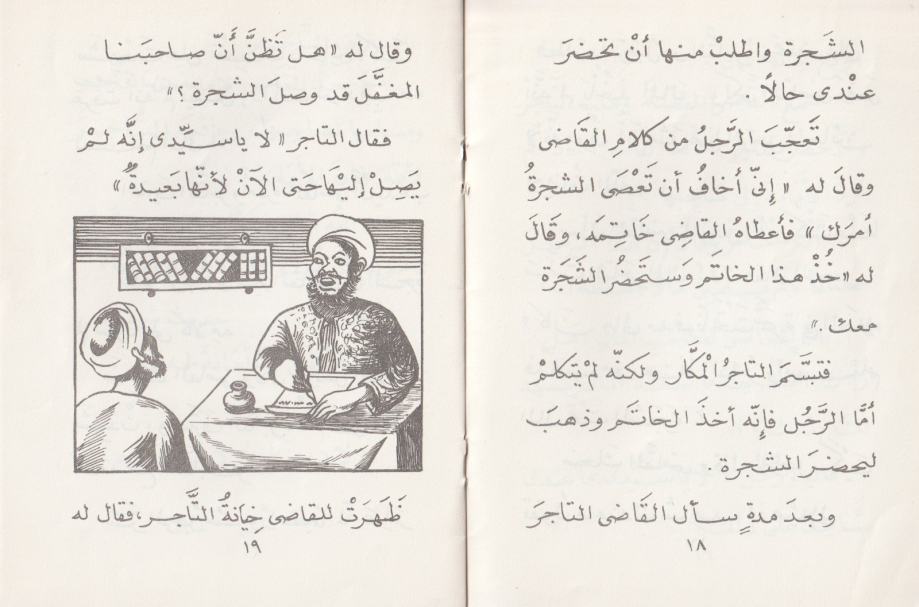 الشَجرة واطلبْ منها أنْ تحضرَ
عنْدى حالًا .
تَعجّبَ الرَّجلُ من كلامِ القَاضى
وقالَ له « إنّى أخافُ أن تَعْصَى الشجرةُ
أمرَك » فأعطاهُ القاضِى خَاتِمَه، وقَالَ
له «خُذْ هذا الخاتَم وَستَحضُر الشَجَرة
معك .»
فتبسَّمَ التاجرُ الْمكَّار ولكنّه لمْ يتكلمْ
أمَّا الرَّجُل فإنّه أخذَ الخاتَم وذهبَ
ليحضرَ الشجرة .
وبعدَ مدةٍ سأل القَاضى التاجرَ
١٨
وقال له «هل تَظنَّ أَنّ صاحبَنا
المغفَّلَ قد وصلَ الشجرة ؟»
فقال التاجر « لا ياسيِّدى إنَّه لمْ
يَصِلْ إليْهَا حَتى الآنْ لأنّها بَعيدةٌ »
ظَهَرَتْ للقاضى خِيَانةُ التَّاجر، فقال له
١٩